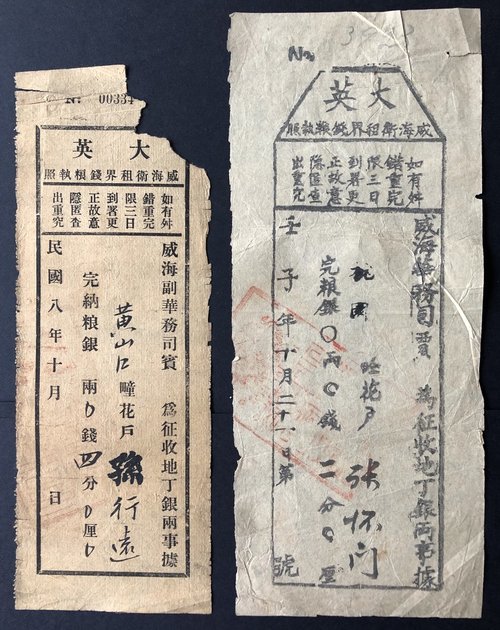 No 00334
大英
威海衛租界錢粮執照
如有舛
錯重完
限三日
到署更
正故意
隱匿查
出重究
威海副華務司賓 為征收地丁銀兩事據
黄山口疃花戶孫行遠
完納粮銀 兩0錢四分0厘0
民國八年十月 日
No.
大英
威海衛租界錢粮執照
如有舛
錯重完
限三日
到署更
正故意
隱匿查
出重究
威海華務司 為征收地丁銀兩事據
疃花戶 張怀
完粮銀〇兩〇錢二分〇厘
壬子年十月二十一日第 號